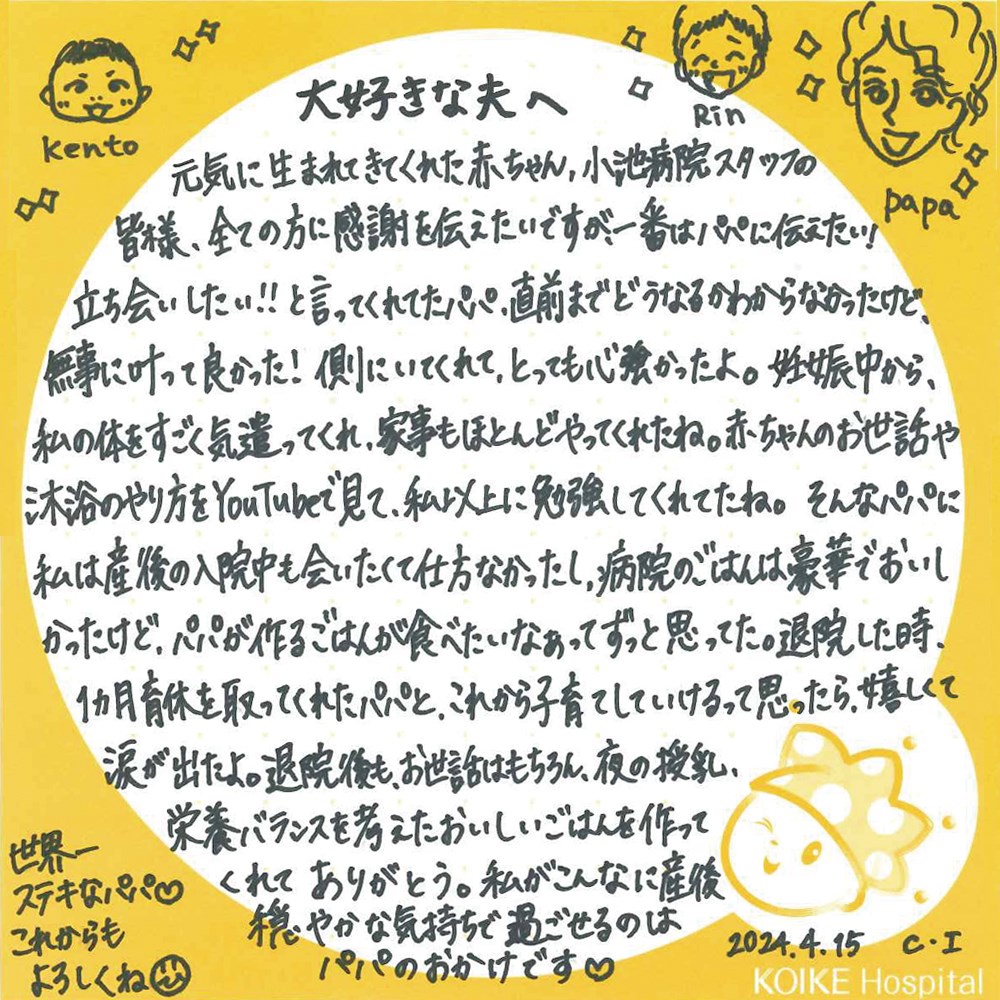 kento
Rin
papa
大好きな夫へ
元気に生まれてきてくれた赤ちゃん,小池病院スタッフの
皆様、全ての方に感謝を伝えたいですが、一番はパパに伝えたい!
立ち会いしたい!!と言ってくれてたパパ、直前までどうなるかわからなかったけど、
無事に叶って良かった!側にいてくれて、とっても心強かったよ。妊娠中から、
私の体をすごく気遣ってくれ、家事もほとんどやってくれたね。赤ちゃんのお世話や
沐浴のやり方をYouTubeで見て、私以上に勉強してくれてたね。そんなパパに
私は産後の入院中も会いたくて仕方なかったし,病院のごはんは豪華でおいし
かったけど、パパが作るごはんが食べたいなぁってずっと思ってた。退院した時、
1カ月育休を取ってくれたパパと、これから子育てしていけるって思ったら、嬉しくて
涙が出たよ。退院後も、お世話はもちろん、夜の授乳、
栄養バランスを考えたおいしいごはんを作って
くれて ありがとう。私がこんなに産後
穏やかな気持ちで過ごせるのは
パパのおかげです♡
世界一
ステキなパパ♡
これからも
よろしくね
2024.4.15 C・I
KOIKE Hospital